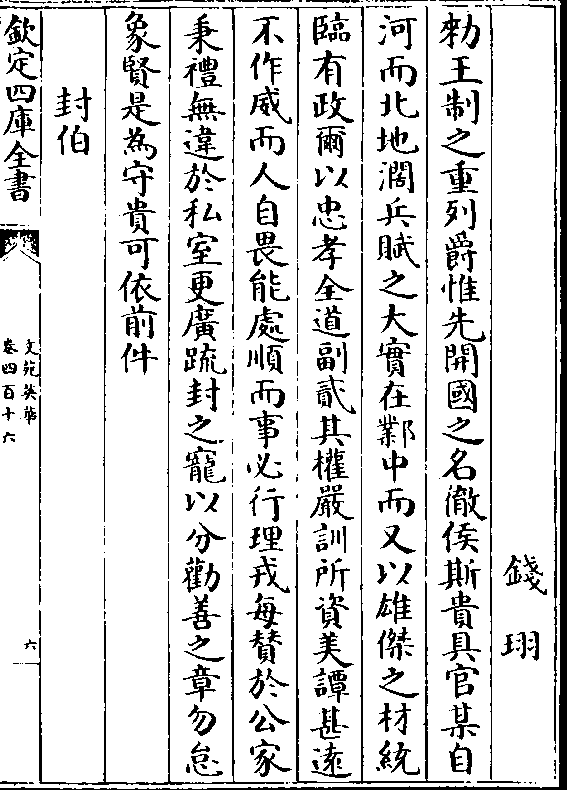 錢珝
勅王制之重列爵惟先開國之名徹侯斯貴具官某自
河而北地濶兵賦之大實在鄴中而又以雄傑之材統
臨有政爾以忠孝全道副貳其權嚴訓所資美譚甚遠
不作威而人自畏能處順而事必行理戎每賛於公家
秉禮無違於私室更廣疏封之寵以分勸善之章勿怠
象賢是為守貴可依前件
封伯
欽定四庫全書
文苑英華
卷四百十六
六